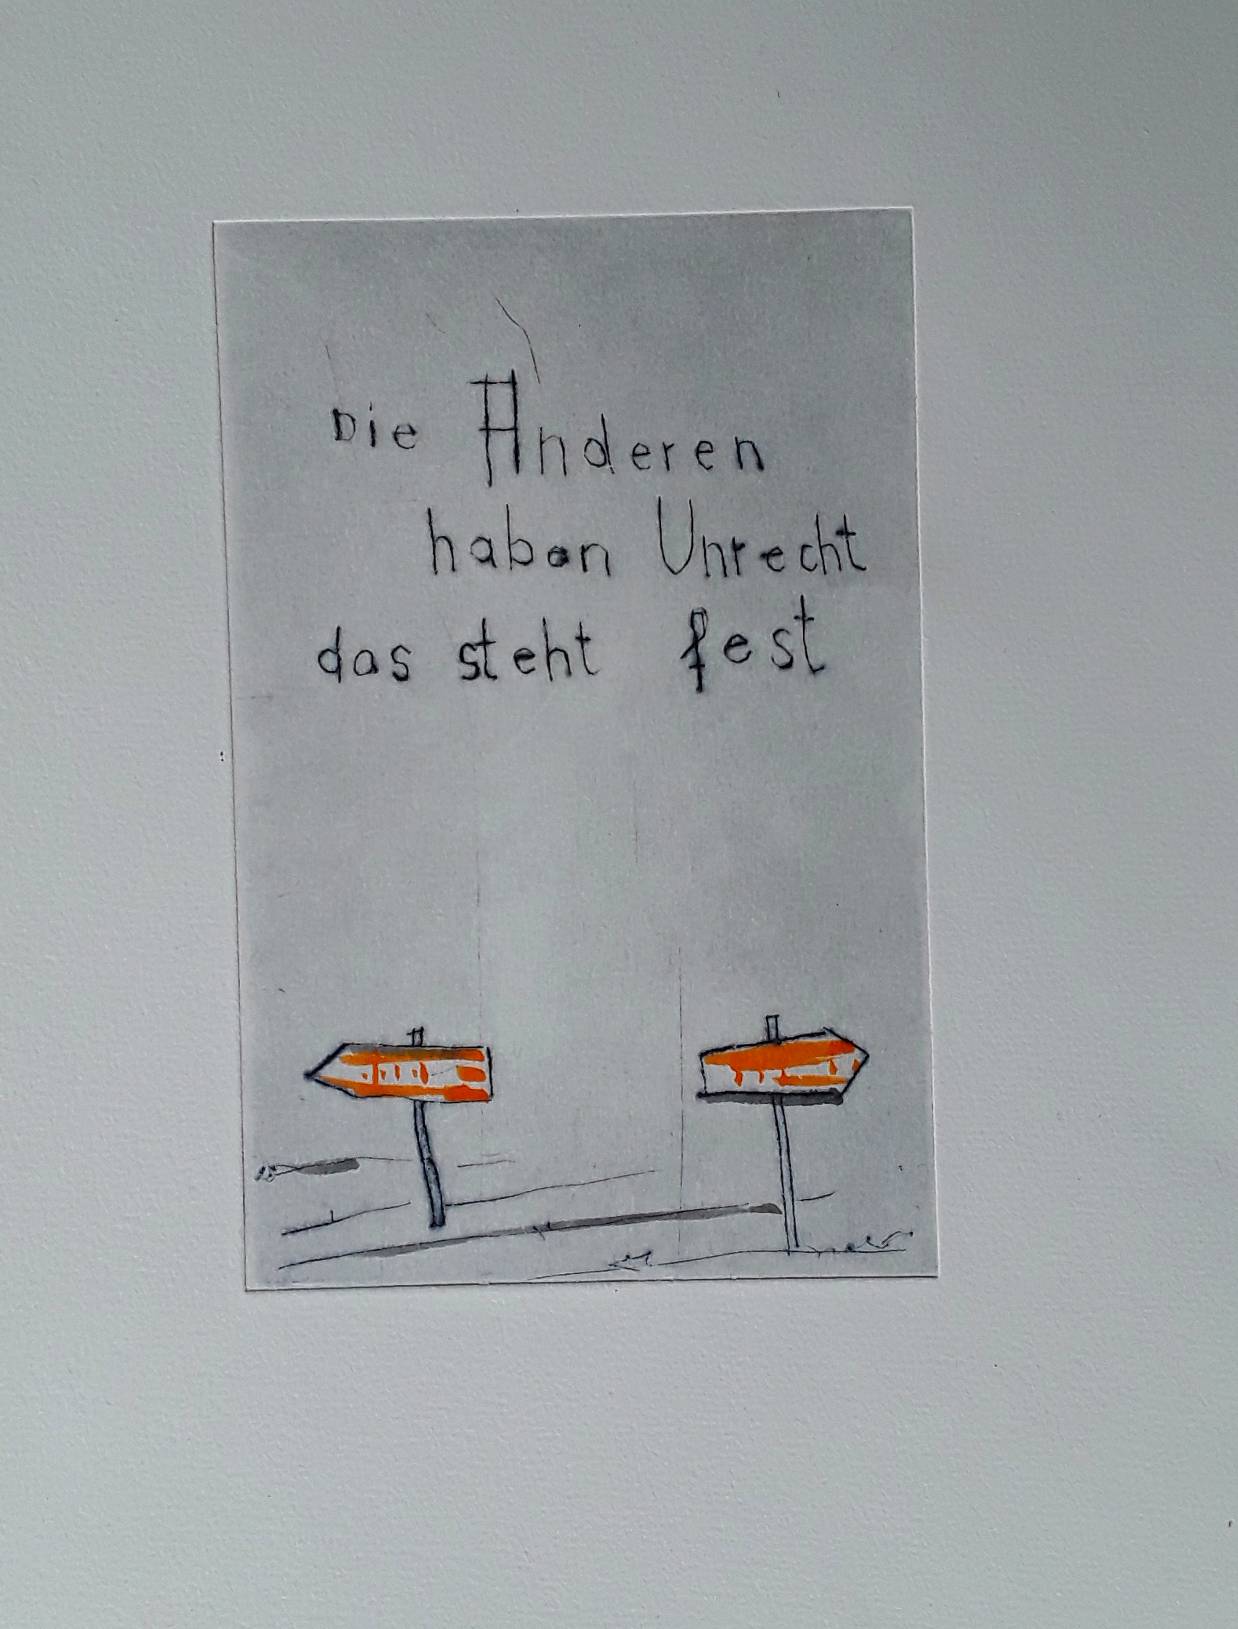 Die Anderen
haben Unrecht
das steht fest